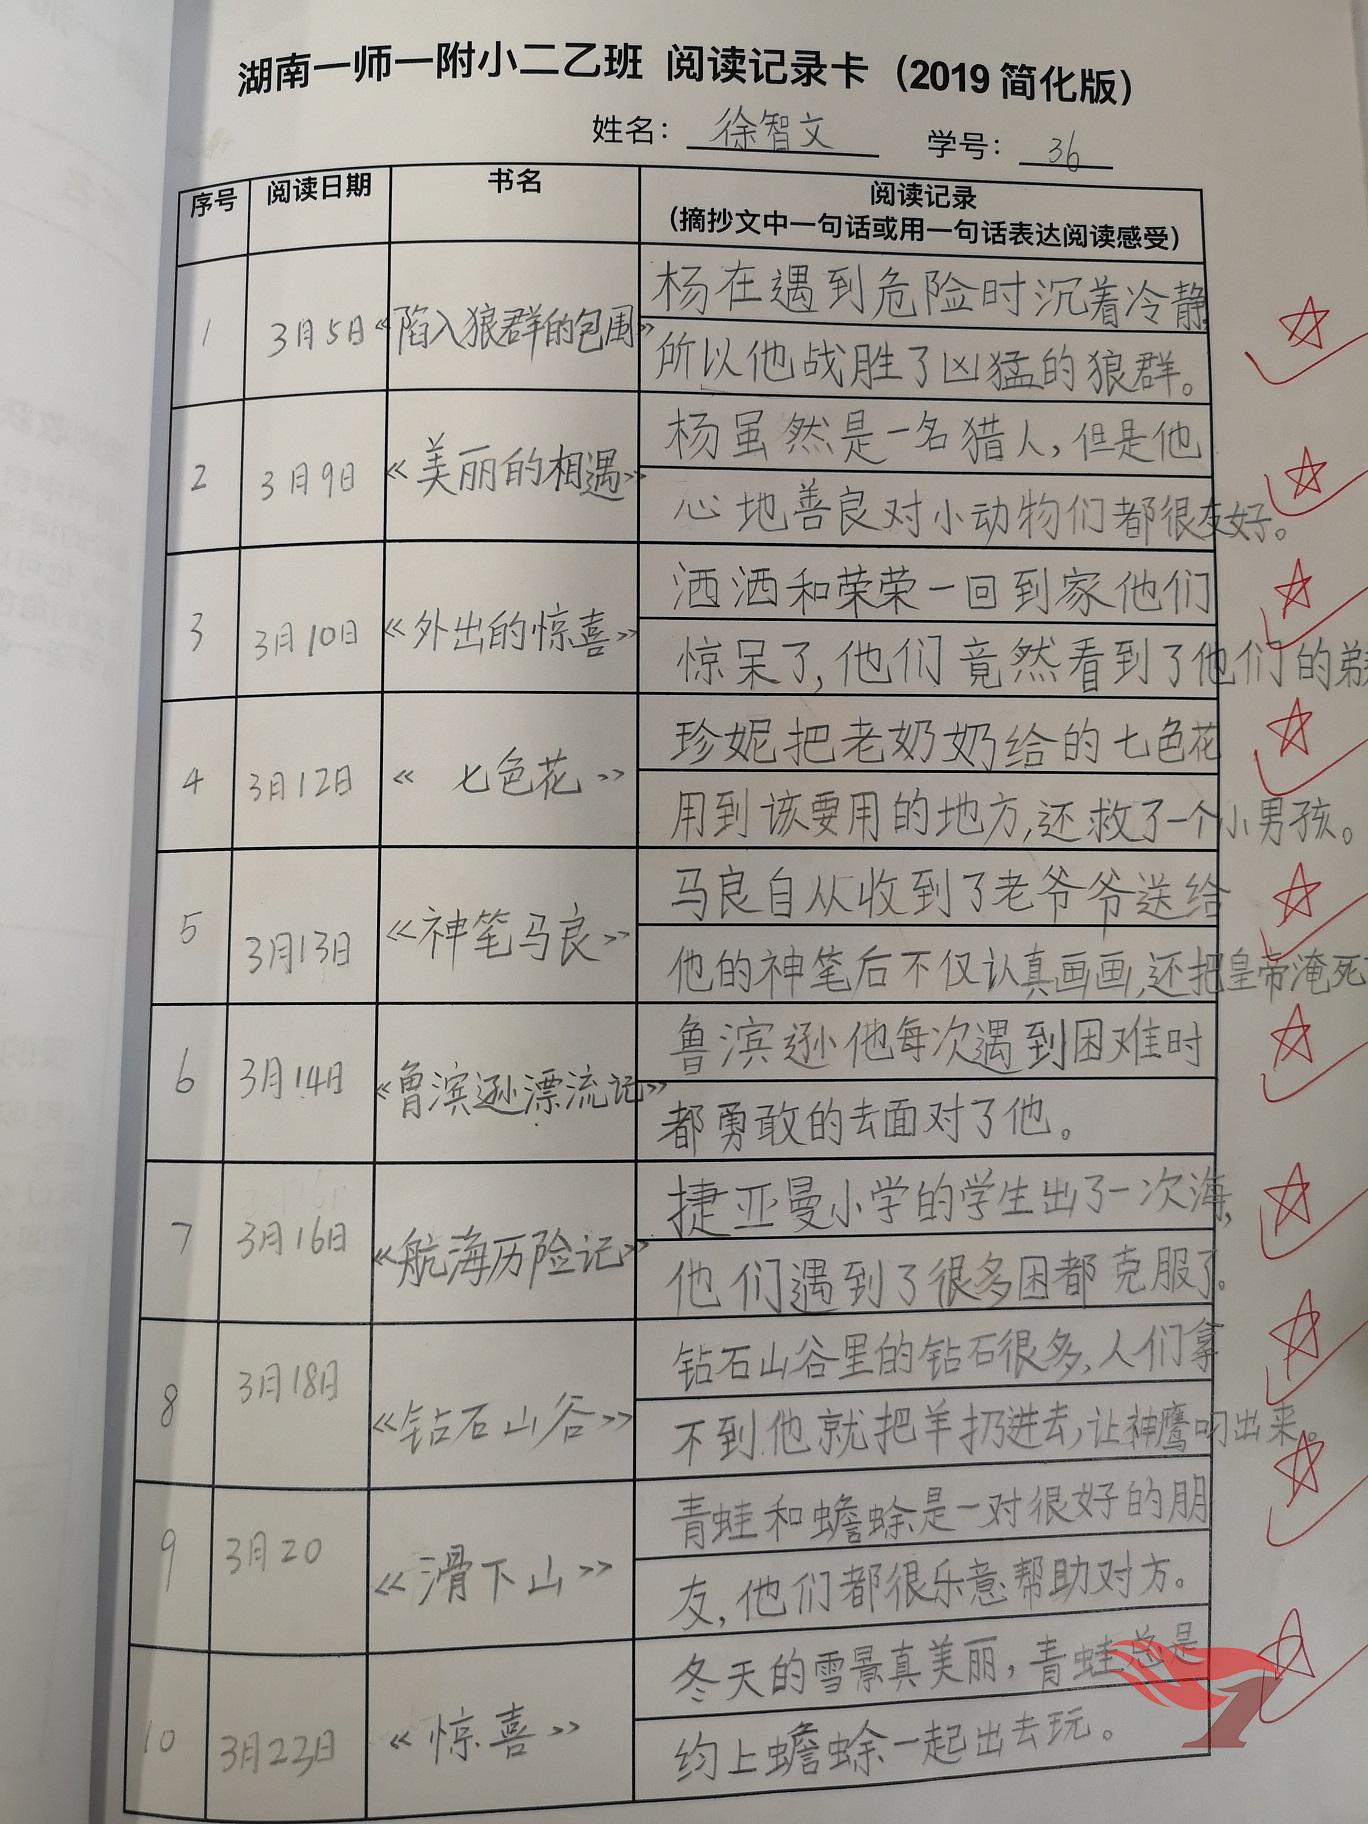 湖南一师一附小二乙班 阅读记录卡（2019简化版）
姓名：徐智文 学号：36
序号 阅读日期 书名 阅读记录
（摘抄文中一句话或用一句话表达阅读感受）
1 3月5日 《陷入狼群的包围》 杨在遇到危险时沉着冷静
所以他战胜了凶猛的狼群。
2 3月9日 《美丽的相遇》 杨虽然是一名猎人，但是他
心地善良对小动物们都很友好。
3 3月10日 《外出的惊喜》 洒洒和荣荣一回到家他们
惊呆了，他们竟然看到了他们的弟
4 3月12日 《七色花》 珍妮把老奶奶给的七色花
用到该要用的地方，还救了一个小男孩。
5 3月13日 《神笔马良》 马良自从收到了老爷爷送给
他的神笔后不仅认真画画，还把皇帝淹死
6 3月14日 《鲁滨逊漂流记》 鲁滨逊他每次遇到困难时
都勇敢的去面对了他。
7 3月16日 《航海历险记》 捷亚曼小学的学生出了一次海，
他们遇到了很多困都克服了。
8 3月18日 《钻石山谷》 钻石山谷里的钻石很多，人们拿
不到他就把羊扔进去，让神鹰叼出来。
9 3月20 《滑下山》 青蛙和蟾蜍是一对很好的朋
友，他们都很乐意帮助对方。
10 3月23日 《惊喜》 冬天的雪景真美丽，青蛙总是
约上蟾蜍一起出去玩。